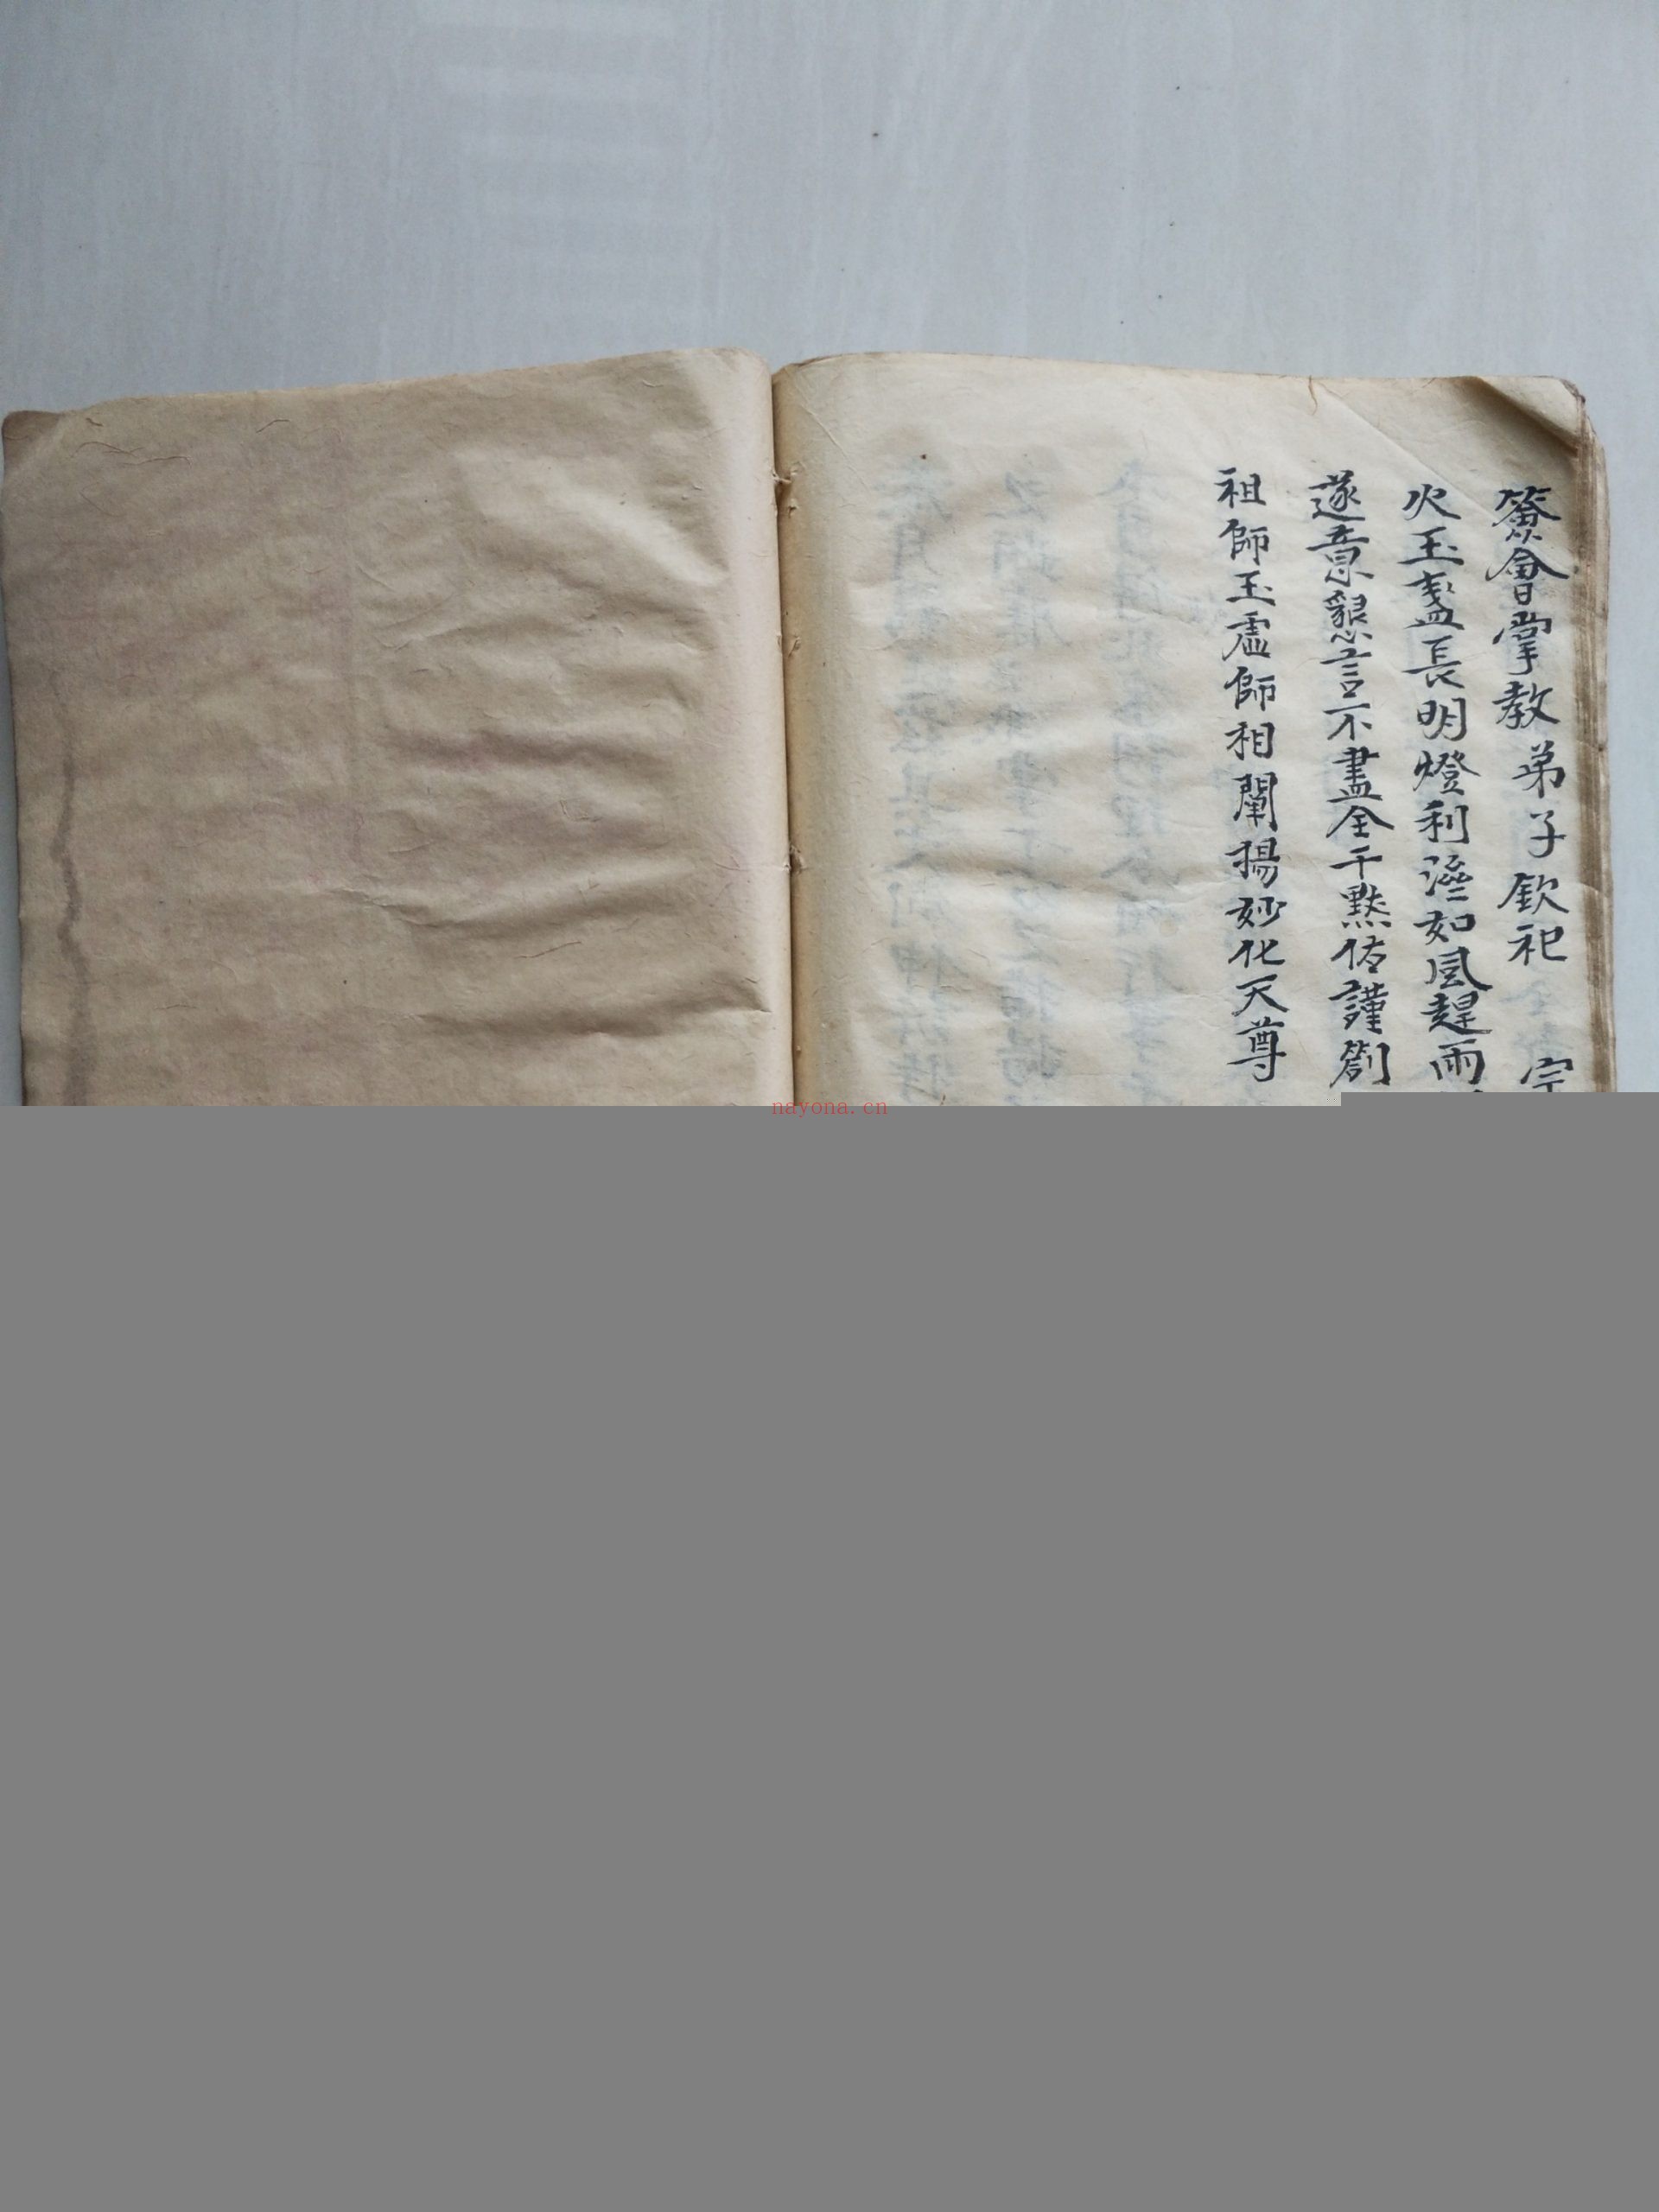 會掌教弟子欽祀 宗
火玉盞長明燈利濟如風趕雨
遂意懇言不盡全千黙佑謹劄
祖師玉虛師相闡揚妙化天尊
nayona.cn